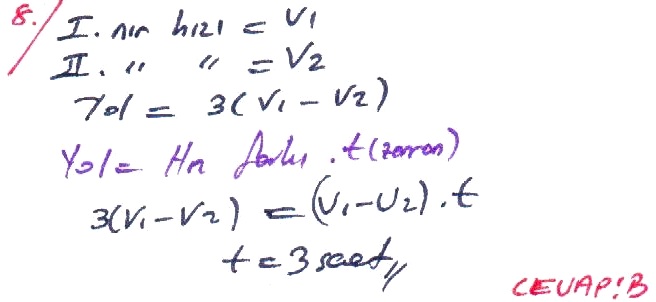 8. I. nın hızı = V1
II. " " = V2
Yol = 3(V1 - V2)
Yol = Hız farkı . t (zaman)
3(V1 - V2) = (V1 - V2) . t
t = 3 saat //
CEVAP: B